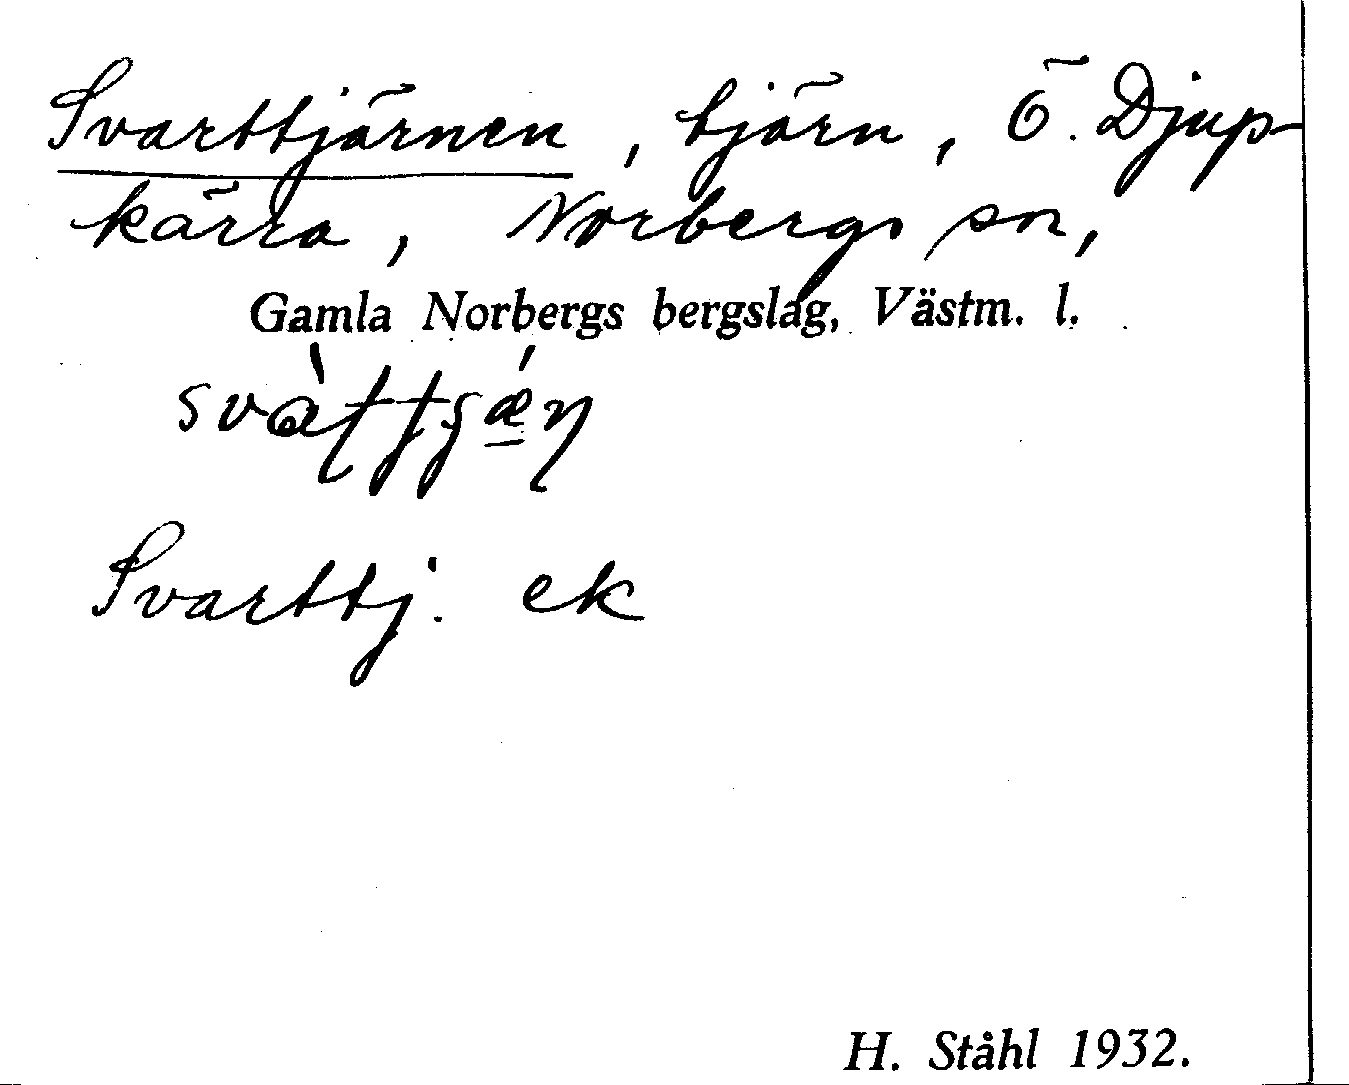 Svarttjärnen, tjärn, Ö. Djup-
kärra, Norbergs sn,
Gamla Norbergs bergslag, Västm. l.
Svarttj. ek
H. Ståhl 1932.